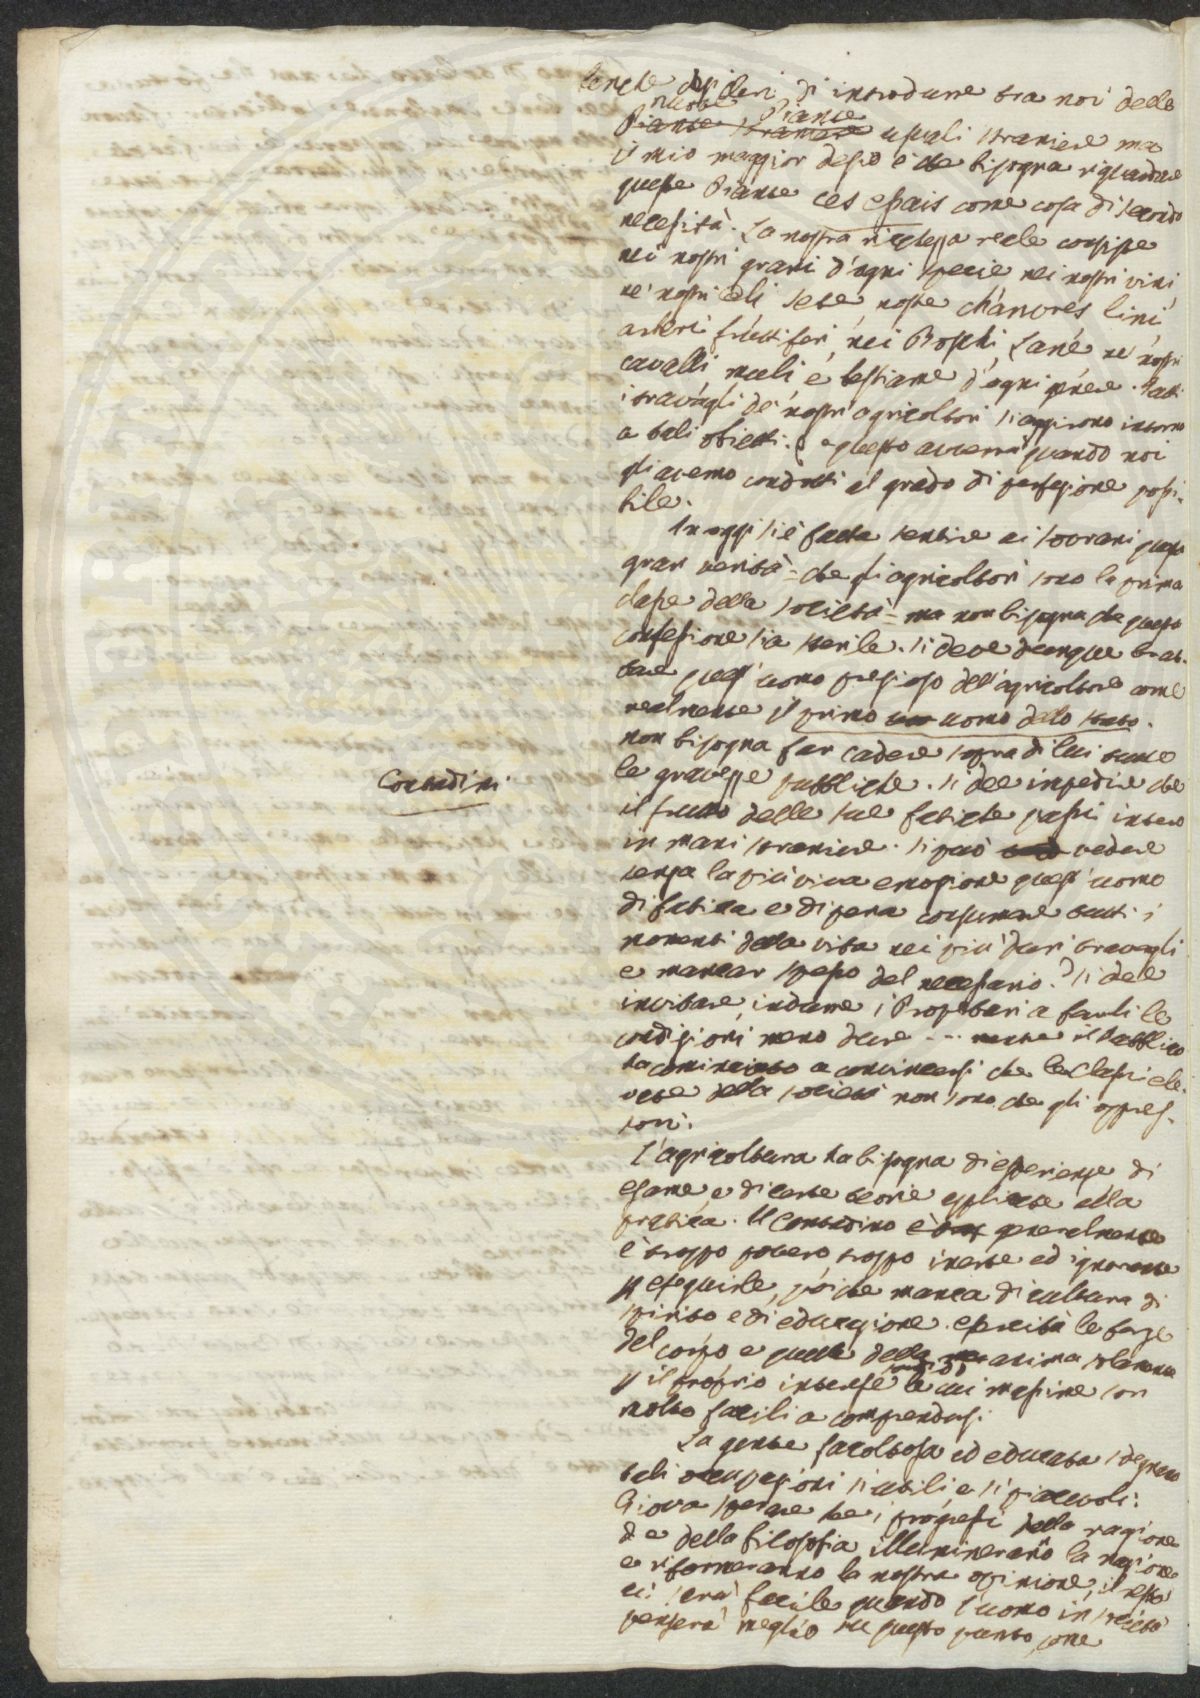 benche desideri di introdurre tra noi delle
nuove Piante
Piante straniere usuali straniere ma
il mio maggior desio è che bisogna riguardare
queste Piante ces epais come cosa di secondo
necessità. La nostra richezza reale consiste
nei nostri grani d'ogni specie nei nostri vini
ne' nostri oli sete, noste chanvres lini
arberi fruttiferi, nei Boschi, Lane ne' nostri
cavalli muli e bestiame d'ogni genere. Tutti
i travagli de' nostri agricoltori si aggirono intorno
a tali obietti. e questo averrà quando noi
gli avremo condotti al grado di perfezione possi-
bile.
In oggi si è fatta sentire ai sovrani questa
gran verità = che gli agricoltori sono la prima
classe della società = ma non bisogna che questa
confessione sia sterile. si deve dunque trat-
tare quest'uomo prezioso dell'agricoltore come
realmente il primo uomo dello stato.
non bisogna far cadere sopra di lui tutte
le gravezze pubbliche. si dee impedire che
Contadini
il frutto delle sue fatiche passi intero
in mani straniere. si può vedere
senza la più viva emozione quest'uomo
di fatica e di pena consumare tutti i
momenti della vita nei più duri travagli
e mancar spesso del necessario? si dee
invitare, indurre i Propietari a farli le
condizioni meno dure --- mentre il Pubblico
ha cominciato a convincersi che le Classi ele-
vate della società non sono che gli oppres-
sori.
L'agricoltura ha bisogna di esperienze di
esame e di certe teorie applicate alla
pratica. Il Contadino è generalmente
è troppo povero, troppo inerte ed ignorante
p eseguirle, poiche manca di cultura di
spirito e di educazione. esercita le forze
del corpo e quelle della anima solamente
p il proprio interesse le cui massime son
molto facili a comprendersi.
La gente facoltosa ed educata sdegnano
tali occupazioni sì utili e sì piacevoli:
Giova sperare che i progressi della ragione
e della filosofia illumineranno la nazione
e riformeranno la nostra opinione, il resto
ci sarà facile quando l'uomo in società
penserà meglio su questo punto, come